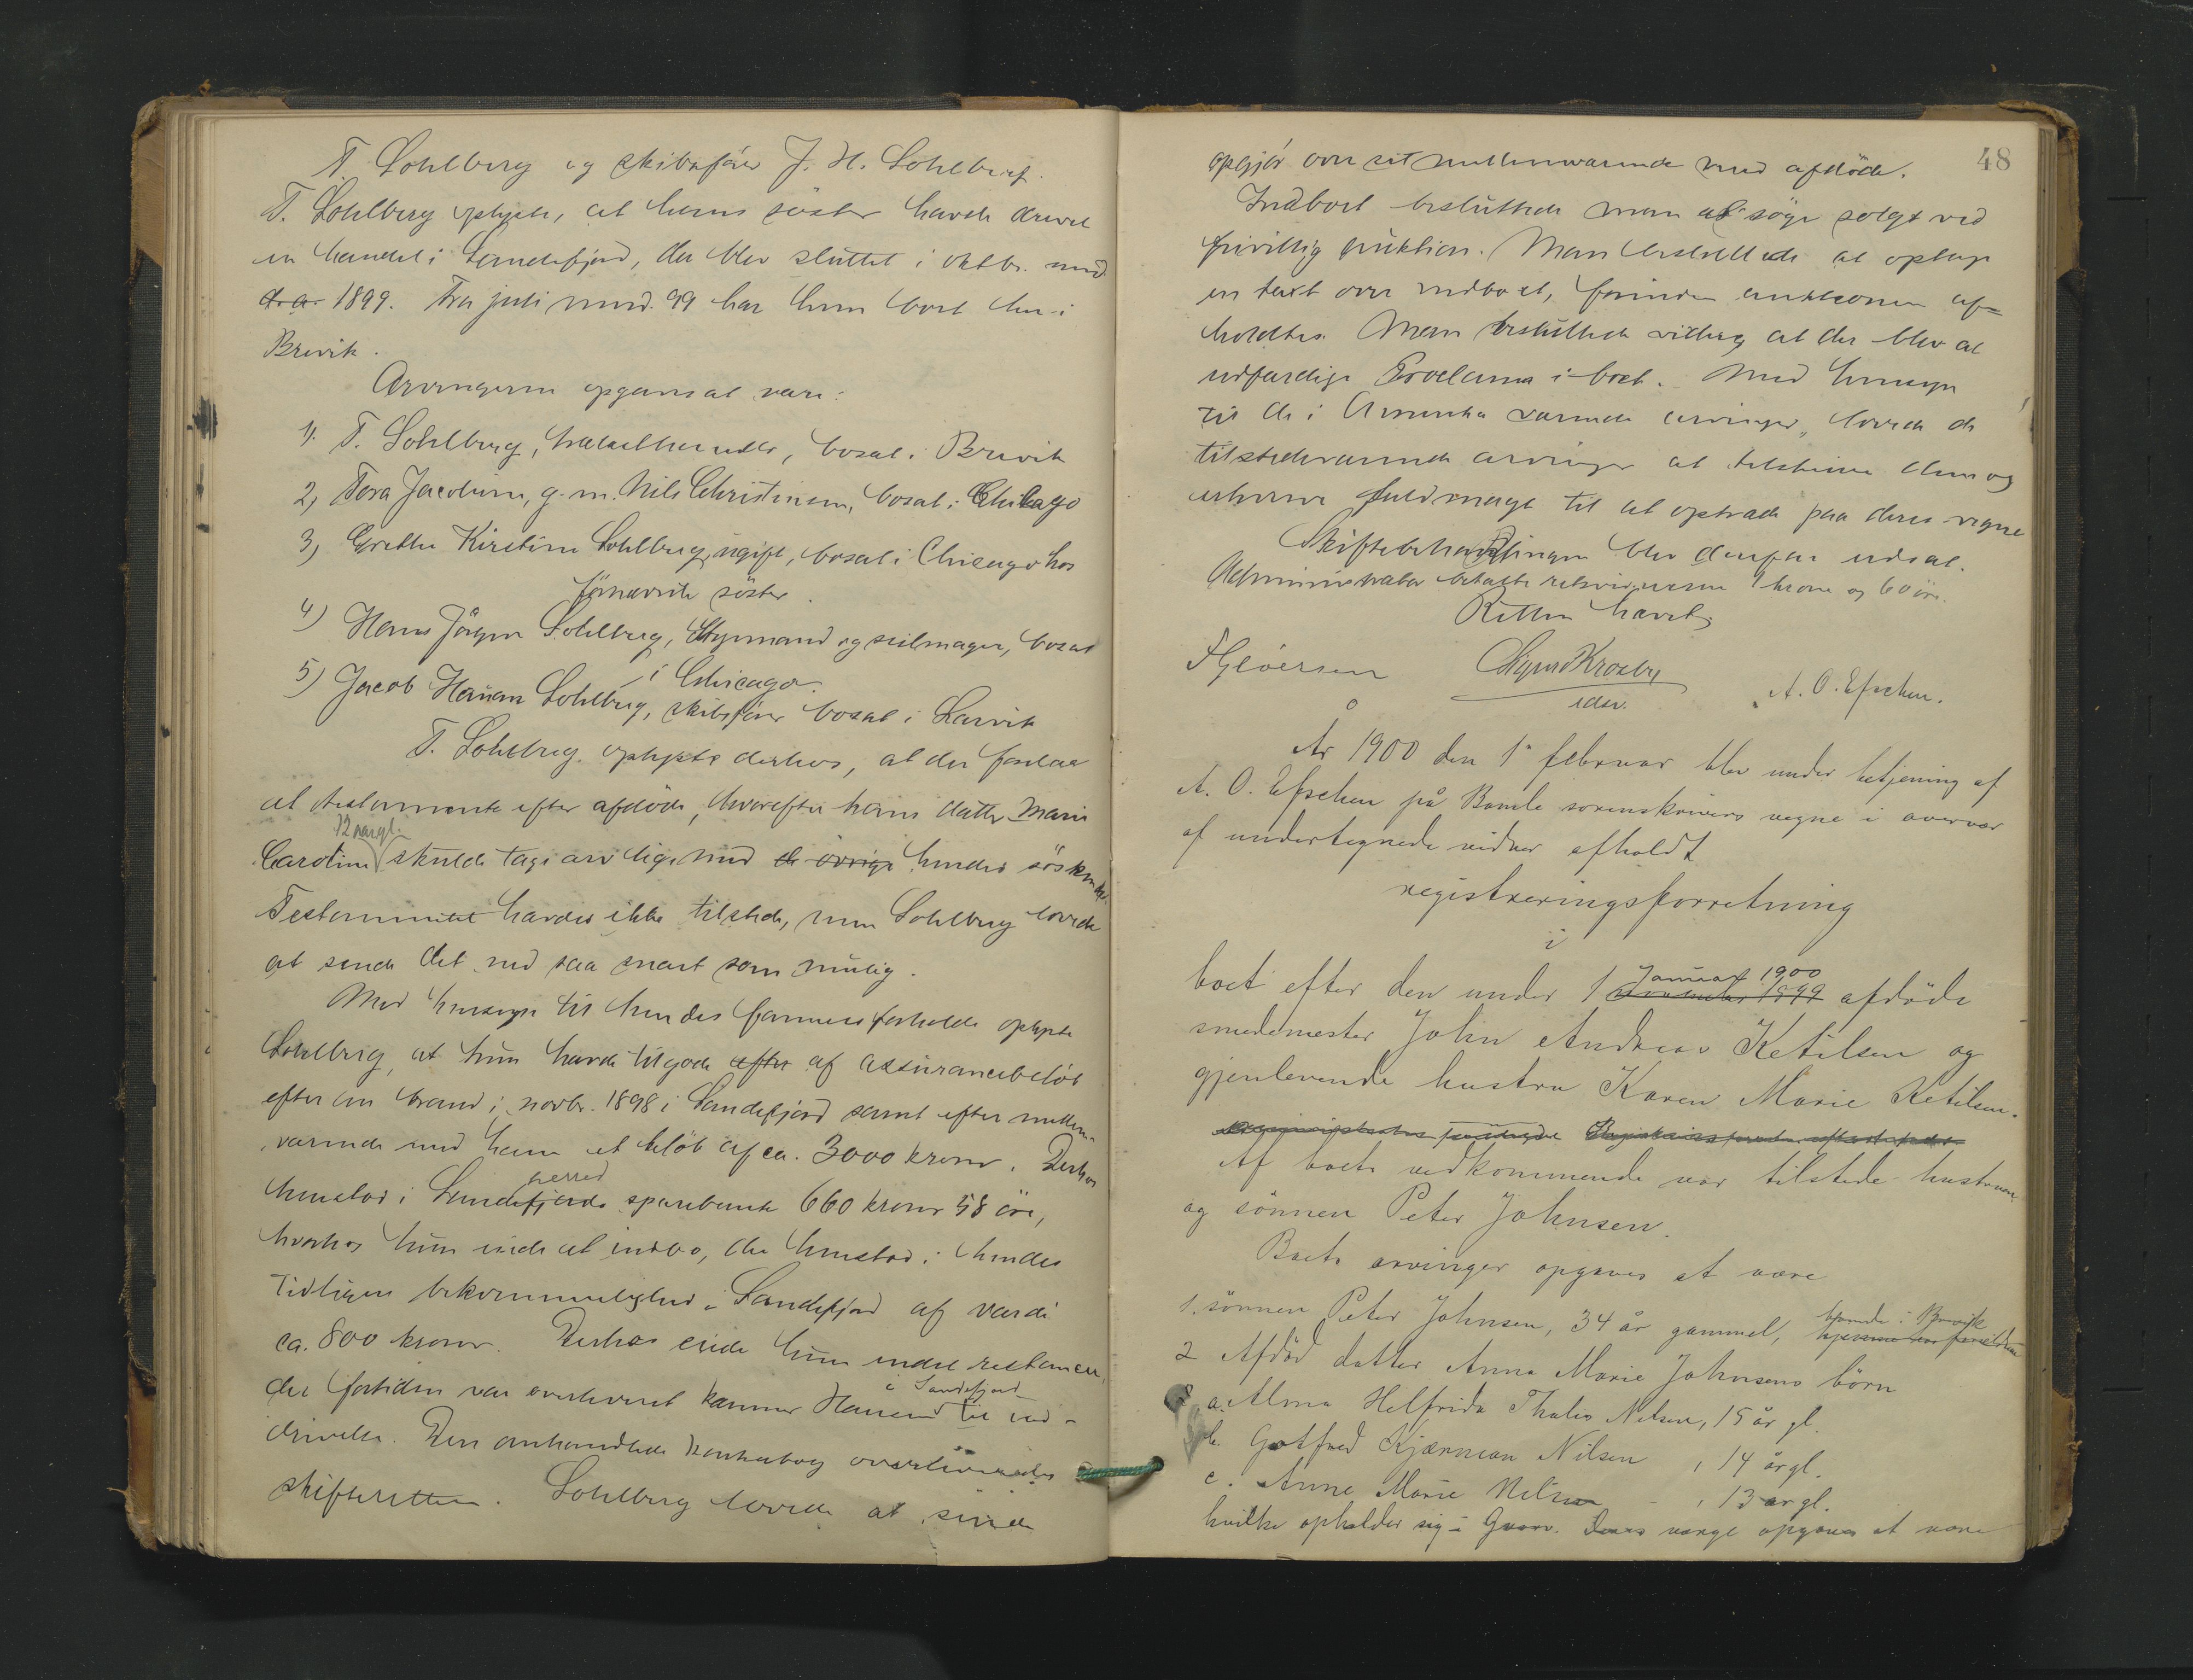 T. Sohlberg og skibsfører J. H. Sohlberg.
T. Sohlberg oplyste, at hans søster havde drevet
en handel i Sandefjord, der blev sluttet i oktbr. mnd
d. a. 1899. Fra juli mnd. 99 har hun boet her i
Brevik.
Arvingerne opgaves at være:
1). T. Sohlberg, bosat i Brevik
2) Tora Jacobine, g. m. Nils Christensen, bosat i Chicago
3) Grethe Kirstine Sohlberg, ugift, bosat i Chicago hos
førnævnte søster.
4) Hans Jørgen Sohlberg, Styrmand og seilmager, bosat
i Chicago.
5) Jacob Hansen Sohlberg, skibsfører bosat i Larvik
T. Sohlberg oplyste derhos, at der forelaa
et testamente efter afdøde, hvorefter hans datter Marie
12 aar gl.
Caroline skulde tage arv lige med de øvrige hendes søskende.
Testamentet havdes ikke tilstede, men Sohlberg lovede
at sende det ned saa snart som mulig.
Med hensyn til hendes formuesforholde oplyste
Sohlberg, at hun havde tilgode efter af assurancebeløb
efter en brand i novbr. 1898 i Sandefjord samt efter mellem-
værende med ham et beløb af ca. 3000 kroner. Derhos
herred
henstod i Sandefjords sparebank 660 kroner 58 øre,
hvorhos hun eiede et indbo, der henstod i hendes
tidligere bekvemmelighed i Sandefjord af værdi
ca. 800 kroner. Derhos eiede hun endel restancer,
i Sandefjord
der fortiden var overleveret Hansen til ind-
drivelse. Den omhandlede bankbog overleveredes
skifteretten. Sohlberg lovede at sende
48
opgjør over sit mellemværende med afdøde.
Indboet besluttede man at søge solgt ved
frivillig auktion. Man besluttede at optage
en taxt over indboet, forinden auktionen af=
holdtes. Man besluttede videre, at der blev at
udfærdige Proclama i boet. Med hensyn
til de i Amerika værende arvinger, lovede de
tilstedeværende arvinger at tilskrive dem og
erhverve fuldmagt til at optræde paa deres vegne
Skiftebehandlingen blev derpaa udsat.
Administrator betalte retsvidnerne 1 krone og 60 øre.
Retten hævet
Sigurd Krosby
edsv.
A. O. Efschen.
År 1900 den 1ste februar blev under betjening af
A. O. Efschen på Bamle sorenskrivers vegne i overvær
af undertegnede vidner afholdt
registreringsforretning
i
Januar 1900
boet efter den under 1 1899 afdøde
smedemester John Andreas Ketilsen og
gjenlevende hustru Karen Marie Ketilsen.
Af boets vedkommende var tilstede hustruen
og sønnen Peter Johnsen.
Boets arvinger opgaves at være
boende i Brevik
1. sønnen Peter Johnsen, 34 år gammel, hjemme hos forældrene
2 Afdød datter Anna Marie Johnsens børn
a. Alma Helfrida Thalis Nilsen, 15 år gl.
b. Gotfred Kjærman Nilsen, 14 år gl.
c. Anne Marie Nilsen, 13 år gl.
hvilke opholder sig i Deres værge opgaves at være